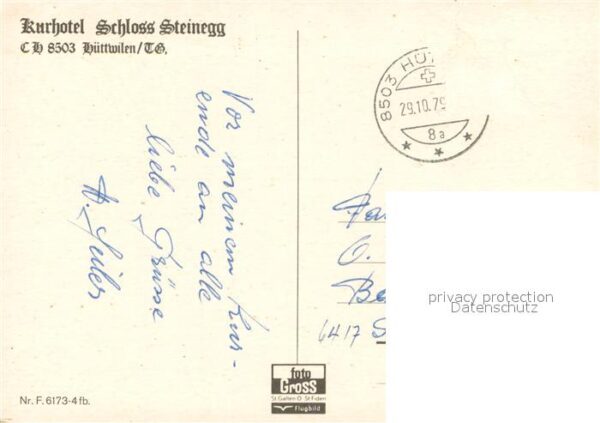 Kurhotel Schloss Steinegg
CH 8503 Hüttwilen/TG.
Vor meinem Kur-
ende an alle
liebe Grüsse
H. Seiler
8503 HÜ
29.10.79
8a
Fa
O.
Be
6417 S
privacy protection
Datenschutz
foto
GROSS
St. Gallen O St. Fiden
Flugbild
Nr. F. 6173-4 fb.